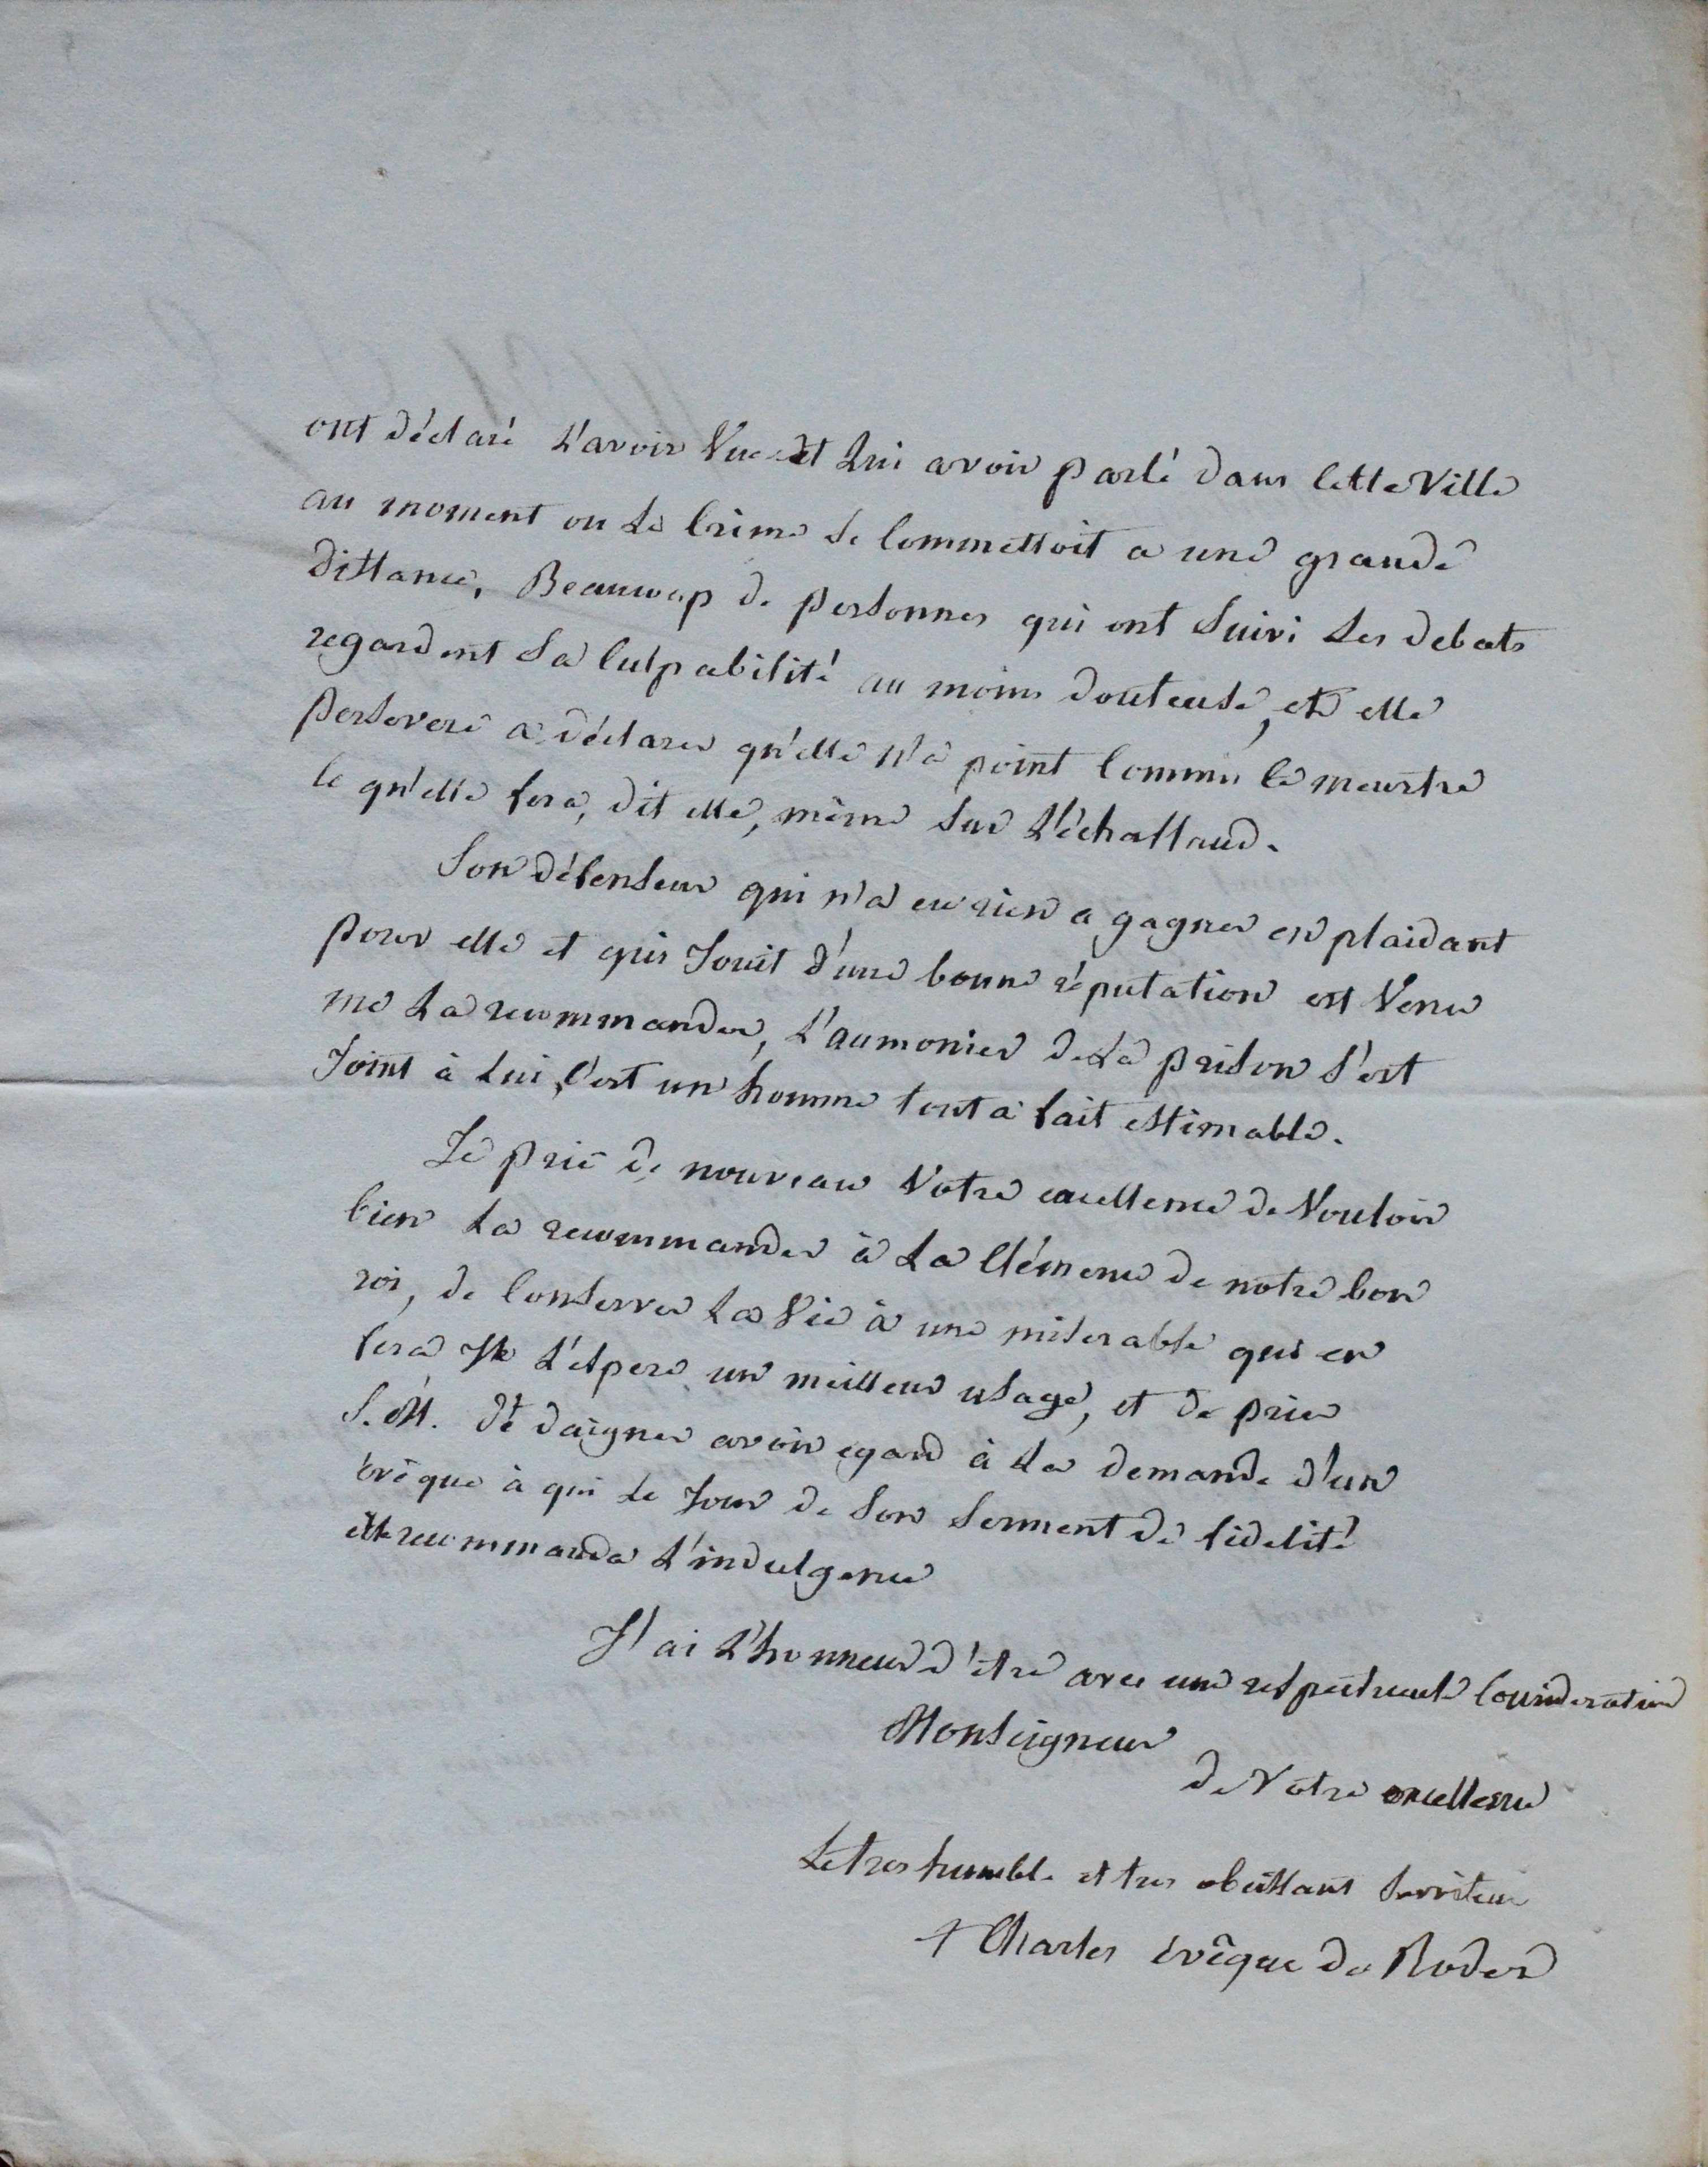 ont déclaré l'avoir vue et lui avoir parlé dans cette ville
au moment ou le crime se commettoit a une grande
distance, Beaucoup de personnes qui ont suivi les debats
regardent sa culpabilité au moins douteuse, et elle
persevere a déclarer qu'elle n'a point commis le meurtre
ce qu'elle fera, dit elle, même sur l'échaffaud.
Son défenseur qui n'a eu rien a gagner en plaidant
pour elle et qui jouit d'une bonne réputation est venu
me la recommander, l'aumonier de la prison s'est
joint à lui, c'est un homme tout a fait estimable.
Je prie de nouveau votre excellence de vouloir
bien la recommander à la clémence de notre bon
roi, de conserver la vie à une miserable qui en
fera je l'espere un meilleur usage, et de prier
S. M. de daigner avoir egard à la demande d'un
évêque à qui le jour de son serment de fidelité
elle recommanda l'indulgence
J'ai l'honneur d'être avec une respectueuse consideration
Monseigneur
de Votre excellence
Le tres humble et tres obeissant serviteur
+ Charles évêque de Rodez